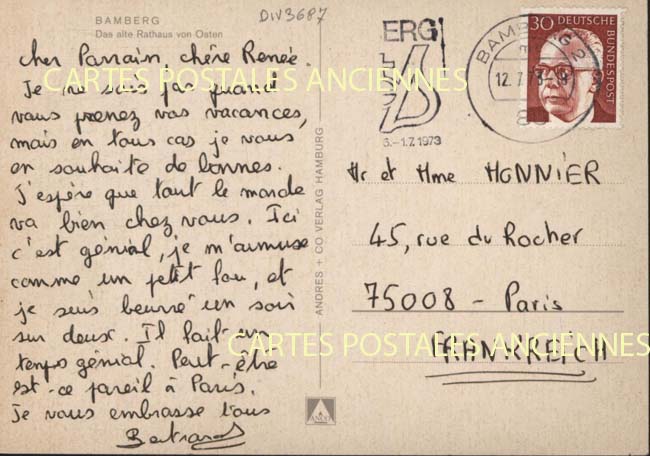 BAMBERG
Das alte Rathaus von Osten
DIV3687
cher Parrain, chère Renée.
Je ne sais pas quand
vous prenez vos vacances,
mais en tous cas je vous
en souhaite de bonnes.
J'espère que tout le monde
va bien chez vous. Ici
c'est génial, je m'amuse
comme un petit fou, et
je suis beurré un soir
sur deux. Il fait un
temps génial. Peut-être
est-ce pareil à Paris.
Je vous embrasse tous
Bertrand
CARTES POSTALES ANCIENNES
CARTES POSTALES ANCIENNES
ANDRES + CO VERLAG HAMBURG
ANCO
ERG
6.-1.7.1973
BAMBERG 2
12.7.73
30
DEUTSCHE
BUNDESPOST
Mr et Mme MONNIER
45, rue du Rocher
75008 - Paris
FRANKREICH